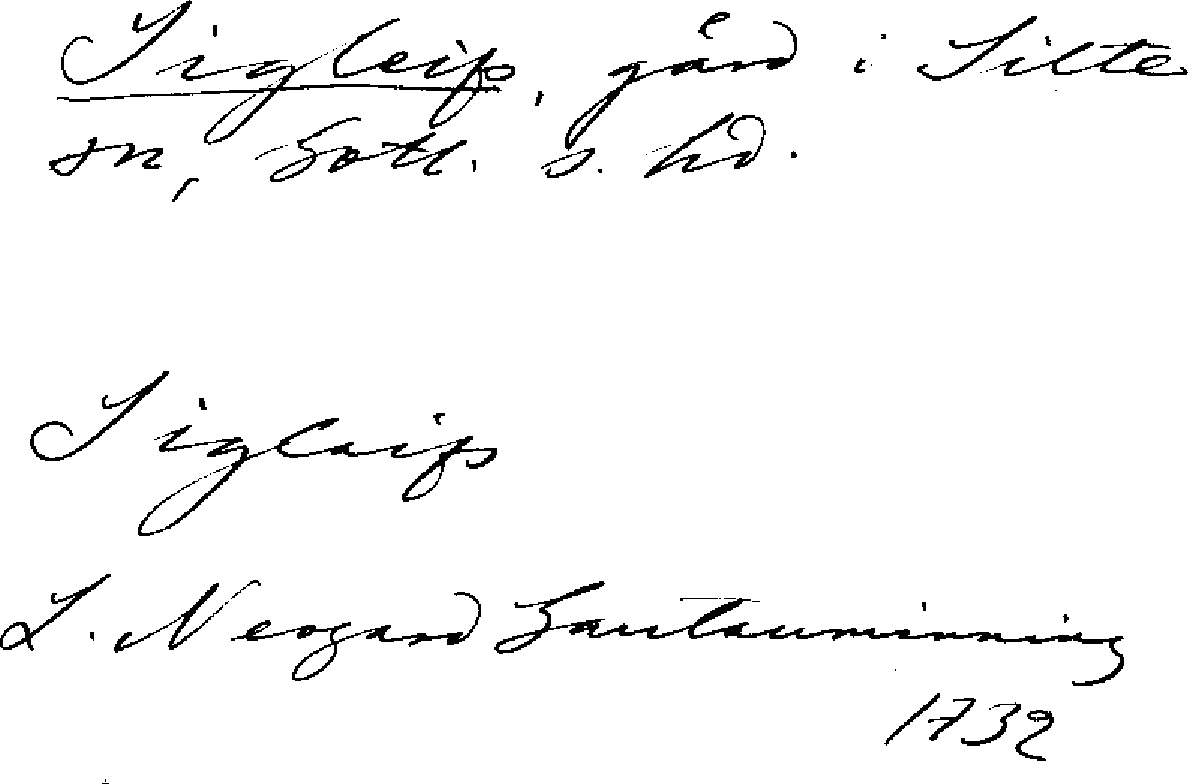 Sigleifs, gård i Silte
sn, Gotl. s. hd.
Siglaifs
L. Neogard Gautauminning
1732